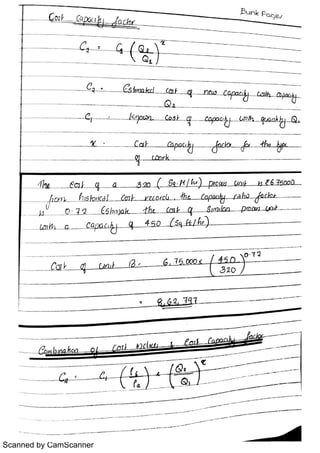 Bunk Pages
Cost Capacity factor
C₂ = C₁ (Q₂/Q₁)ˣ
C₂ - Estimated cost of new capacity with capacity
Q₂
C₁ - Known cost of capacity with quantity Q₁
x - Cost capacity factor for the type
of work
The cost of a 320 (Sq.ft/hr) process unit is ₹675000
from historical cost records, the capacity ratio factor
is 0.72 Estimate the cost of similar process unit
with a capacity of 450 (Sq ft/hr)
Cost of unit B = 6,75,000 x (450/320)^0.72
= 8,62,797
Combination of Cost indices & Cost Capacity factor
C₁ x (Q₂/Q₁)ˣ
Scanned by CamScanner